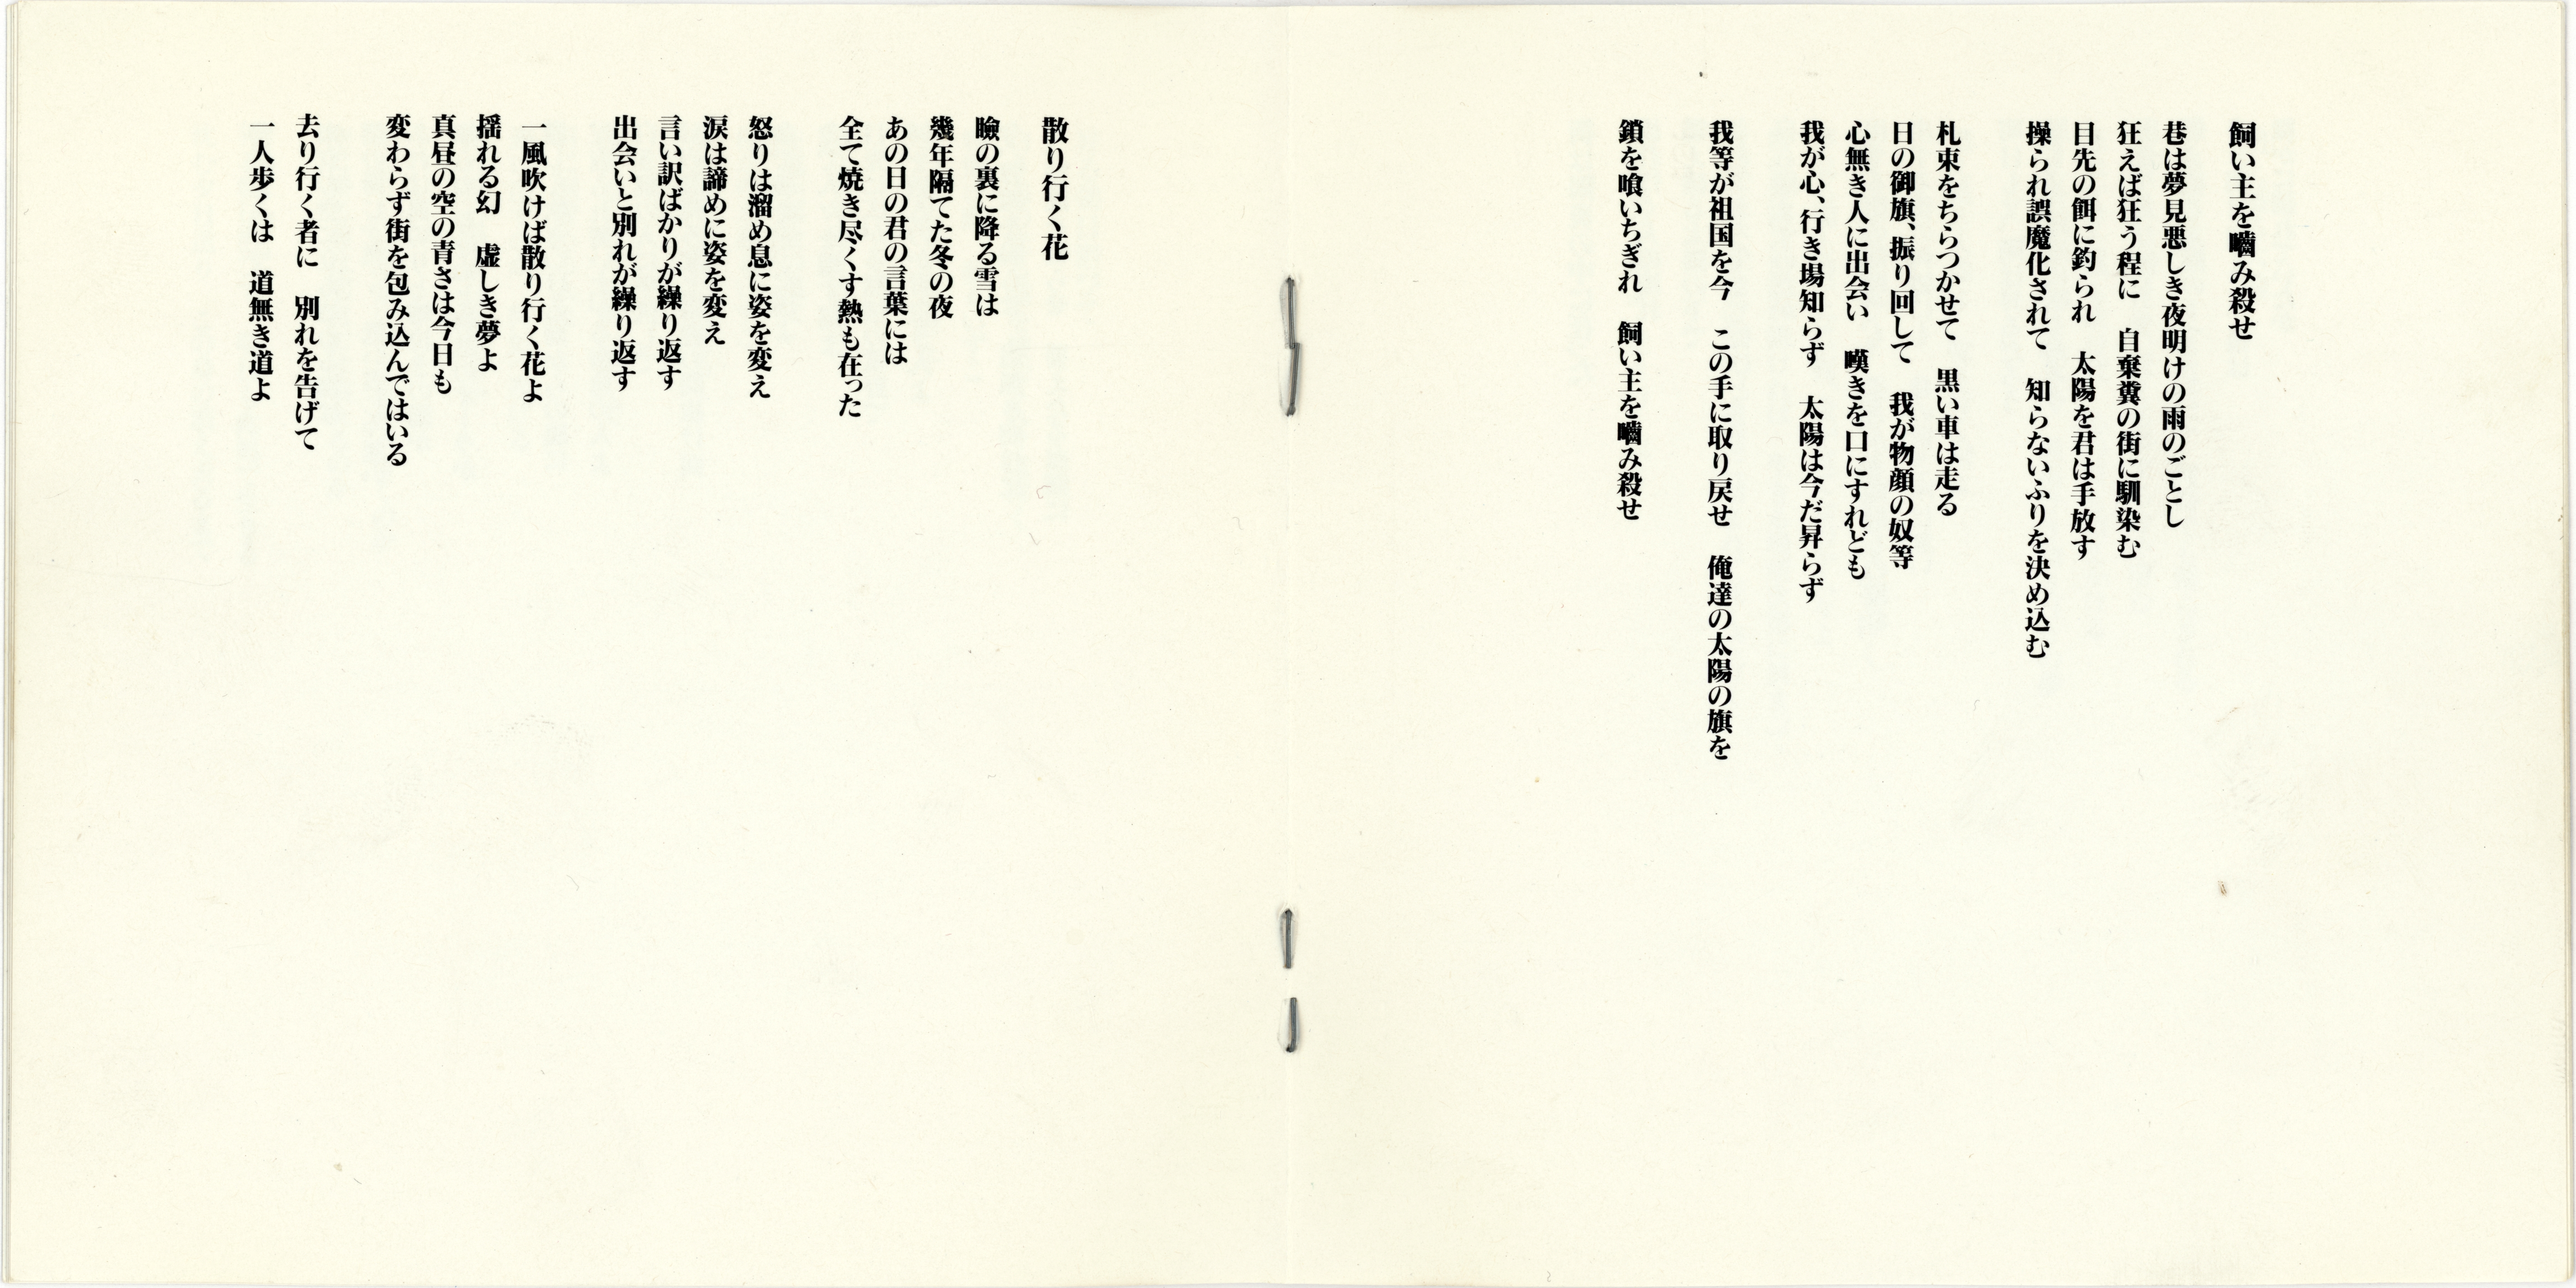 飼い主を嚙み殺せ
巷は夢見悪しき夜明けの雨のごとし
狂えば狂う程に　自棄糞の街に馴染む
目先の餌に釣られ　太陽を君は手放す
操られ誤魔化されて　知らないふりを決め込む
札束をちらつかせて　黒い車は走る
日の御旗、振り回して　我が物顔の奴等
心無き人に出会い　嘆きを口にすれども
我が心、行き場知らず　太陽は今だ昇らず
我等が祖国を今　この手に取り戻せ　俺達の太陽の旗を
鎖を喰いちぎれ　飼い主を嚙み殺せ
散り行く花
瞼の裏に降る雪は
幾年隔てた冬の夜
あの日の君の言葉には
全て焼き尽くす熱も在った
怒りは溜め息に姿を変え
涙は諦めに姿を変え
言い訳ばかりが繰り返す
出会いと別れが繰り返す
一風吹けば散り行く花よ
揺れる幻　虚しき夢よ
真昼の空の青さは今日も
変わらず街を包み込んではいる
去り行く者に　別れを告げて
一人歩くは　道無き道よ